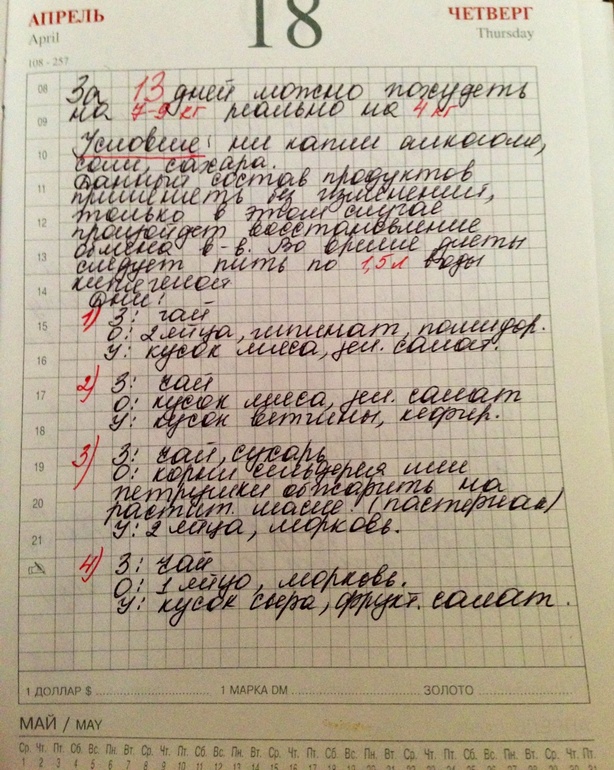 АПРЕЛЬ 18 ЧЕТВЕРГ
April Thursday
108 - 257
08 За 13 дней можно похудеть
на 7-9 кг реально на 4 кг
09
Условие: ни капли алкоголя,
10 соли, сахара.
Данный состав продуктов
11 применять без изменений,
только в этом случае
12 произойдет восстановление
обмена в-в. Во время диеты
13 следует пить по 1,5 л воды
кипяченой
14 Дни:
1) З: чай
15 О: 2 яйца, шпинат, помидор.
У: кусок мяса, зел. салат.
16
2) З: чай
17 О: кусок мяса, зел. салат
У: кусок ветчины, кефир.
18
3) З: чай, сухарь
19 О: корни сельдерея или
петрушки обжарить на
20 растит. масле. (пастернак)
У: 2 яйца, морковь.
21
4) З: чай
О: 1 яйцо, морковь.
У: кусок сыра, фрукт. салат.
1 ДОЛЛАР $ 1 МАРКА DM ЗОЛОТО
МАЙ / MAY
Ср. Чт. Пт. Сб. Вс. Пн. Вт. Ср. Чт. Пт. Сб. Вс. Пн. Вт. Ср. Чт. Пт. Сб. Вс. Пн. Вт. Ср. Чт. Пт. Сб. Вс. Пн. Вт. Ср. Чт. Пт.